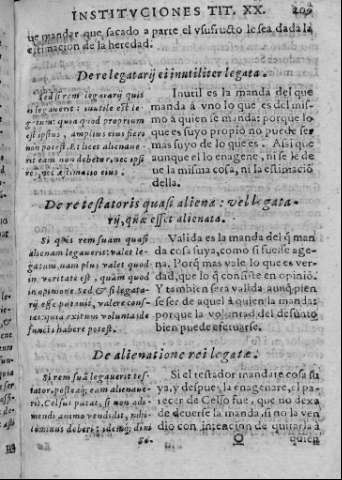 INSTITVCIONES TIT. XX. 209
ue mandar que sacado a parte el vsufructo le sea dada la
estimacion de la heredad.
De re legatarij ei inutiliter legata.
Sed si rem legatarij quis
legauerit: inutile est le-
gatum: quia quod proprium
est ipsius, amplius eius fieri
non potest. Et licet alienaue-
rit eam non debetur, nec ipsi
rei, nec æstimatio eius.
Inutil es la manda del que
manda à vno lo que es del mis-
mo à quien se manda: porque lo
que es suyo propio no puede ser
mas suyo de lo que es. Assi que
aunque el lo enagene, ni se le de
ue la misma cosa, ni la estimacion
della.
De re testatoris quasi aliena: vel legata-
rij, quæ esset alienata.
Si quis rem suam quasi
alienam legauerit: valet le-
gatum, nam plus valet quod
in veritate est, quàm quod
in opinione. Sed & si legata-
rij esse putauit, valere cons-
tet: quia exitum voluntas de
functi habere potest.
Valida es la manda del q̃ man
da cosa suya, como si fuesse age-
na. Porq̃ mas vale lo que es ver-
dad, que lo q̃ consiste en opinió.
Y tambien sera valida aunq̃ pien
se ser de aquel à quien la manda:
porque la voluntad del defunto
bien puede efetuarse.
De alienatione rei legatæ.
Si rem suã legauerit tes-
tator, posteaq; eam alienaue-
rit. Celsus putat, si non adi-
mendi animo vendidit, nihi-
lominus deberi: idemq; diui
Si el testador mandare cosa su
ya, y despues la enagenare, el pa-
recer de Celso fue, que no dexa
de deuerse la manda, si no la ven
dio con intencion de quitarla à
Q quien